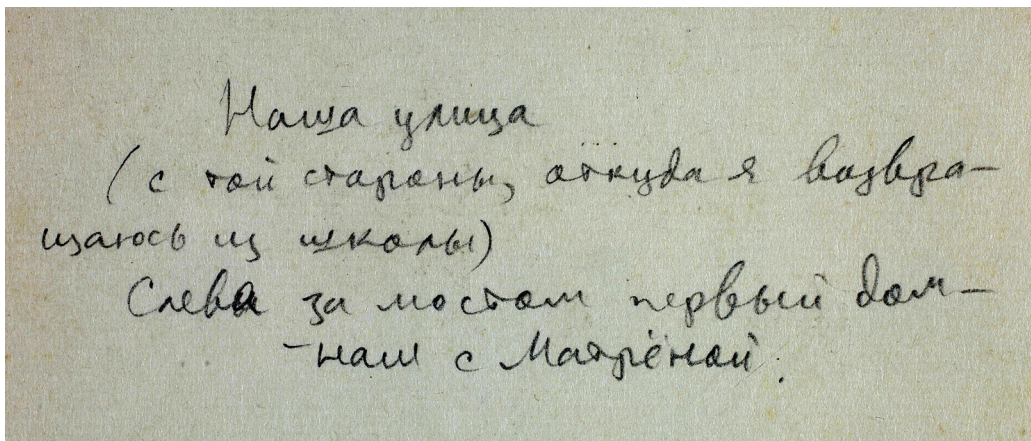 Наша улица
(с той стороны, откуда я возвра-
щаюсь из школы)
Слева за мостом первый дом-
-наш с Матрёной.